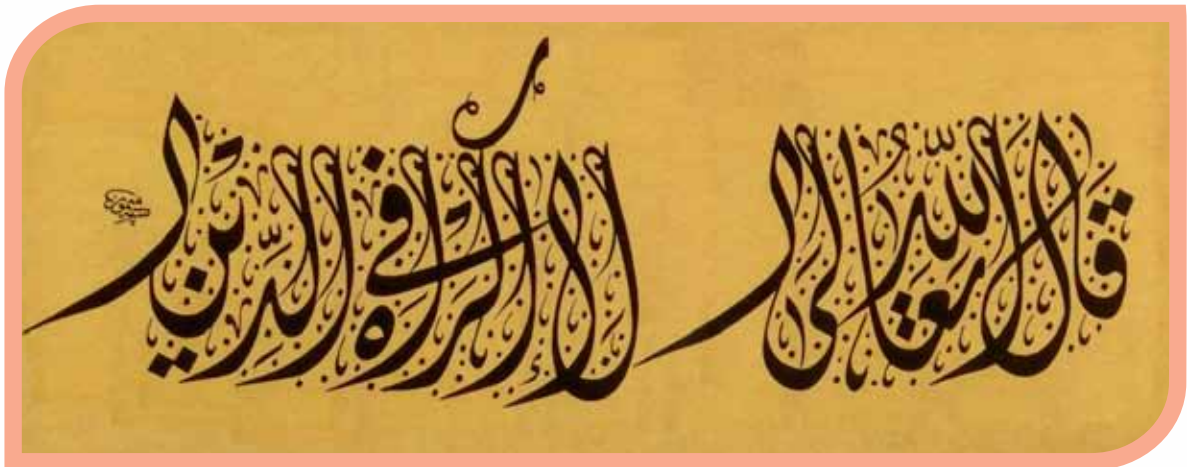 قَالَ اللّٰهُ تَعَالَى لَا إِكْرَاهَ فِي الدِّينِ